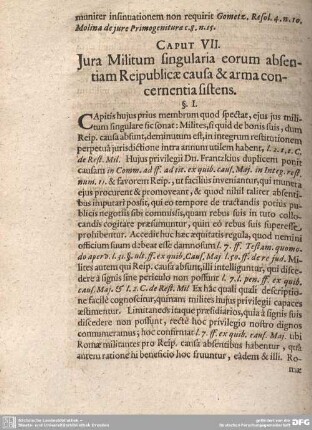 muniter insinuationem non requirit Gometz. Resol. 4. n. 10.
Molina de jure Primogenitura c. 8. n. 15.
CAPUT VII.
Jura Militum singularia eorum absen-
tiam Reipublicæ causa & arma con-
cernentia sistens.
§. I.
CApitis hujus prius membrum quod spectat, ejus jus mili-
tum singulare sic sonat: Milites, si quid de bonis suis, dum
Reip. causa absunt, deminutum est, in integrum restitutionem
perpetuâ jurisdictione intra annum utilem habent, l. 2. C.
de Rest. Mil. Hujus privilegii Dn. Frantzkius duplicem ponit
causam in Comm. ad ff. ad tit. ex quib. caus. Maj. in Integ. rest.
num. 11. & favorem Reip., ut facilius inveniantur, qui munera
ejus procurent & promoveant, & quod nihil taliter absenti-
bus imputari possit, qui eo tempore de tractandis potius pu-
blicis negotiis sibi commissis, quam rebus suis in tuto collo-
candis cogitare præsumuntur, quin eo rebus suis superesse
prohibentur. Accedit huc hæc æquitatis regula, quod nemini
officium suum debeat esse damnosum l. 7. ff. Testam. quomo-
do aper. l. 31. §. ult. ff. ex quib. Caus. Maj. l. 50. ff. de re jud. Mi-
lites autem qui Reip. causâ absunt, illi intelliguntur, qui disce-
dere à signis sine periculo non possunt l. 7. l. pen. ff. ex quib.
caus. Maj. & l. 2. C. de Rest. Mil. Ex hac quali quali descriptio-
ne facilè cognoscitur, quinam milites hujus privilegii capaces
æstimentur. Limitaneos itaque præsidiarios, quia à signis suis
discedere non possunt, recte hoc privilegio nostro dignos
connumeramus; hoc confirmat l. 7. ff. ex quib. caus. Maj. ubi
Romæ militantes pro Reip. causa absentibus habentur, quâ
autem ratione hi beneficio hoc fruuntur, eâdem & illi. Ro-
mæ